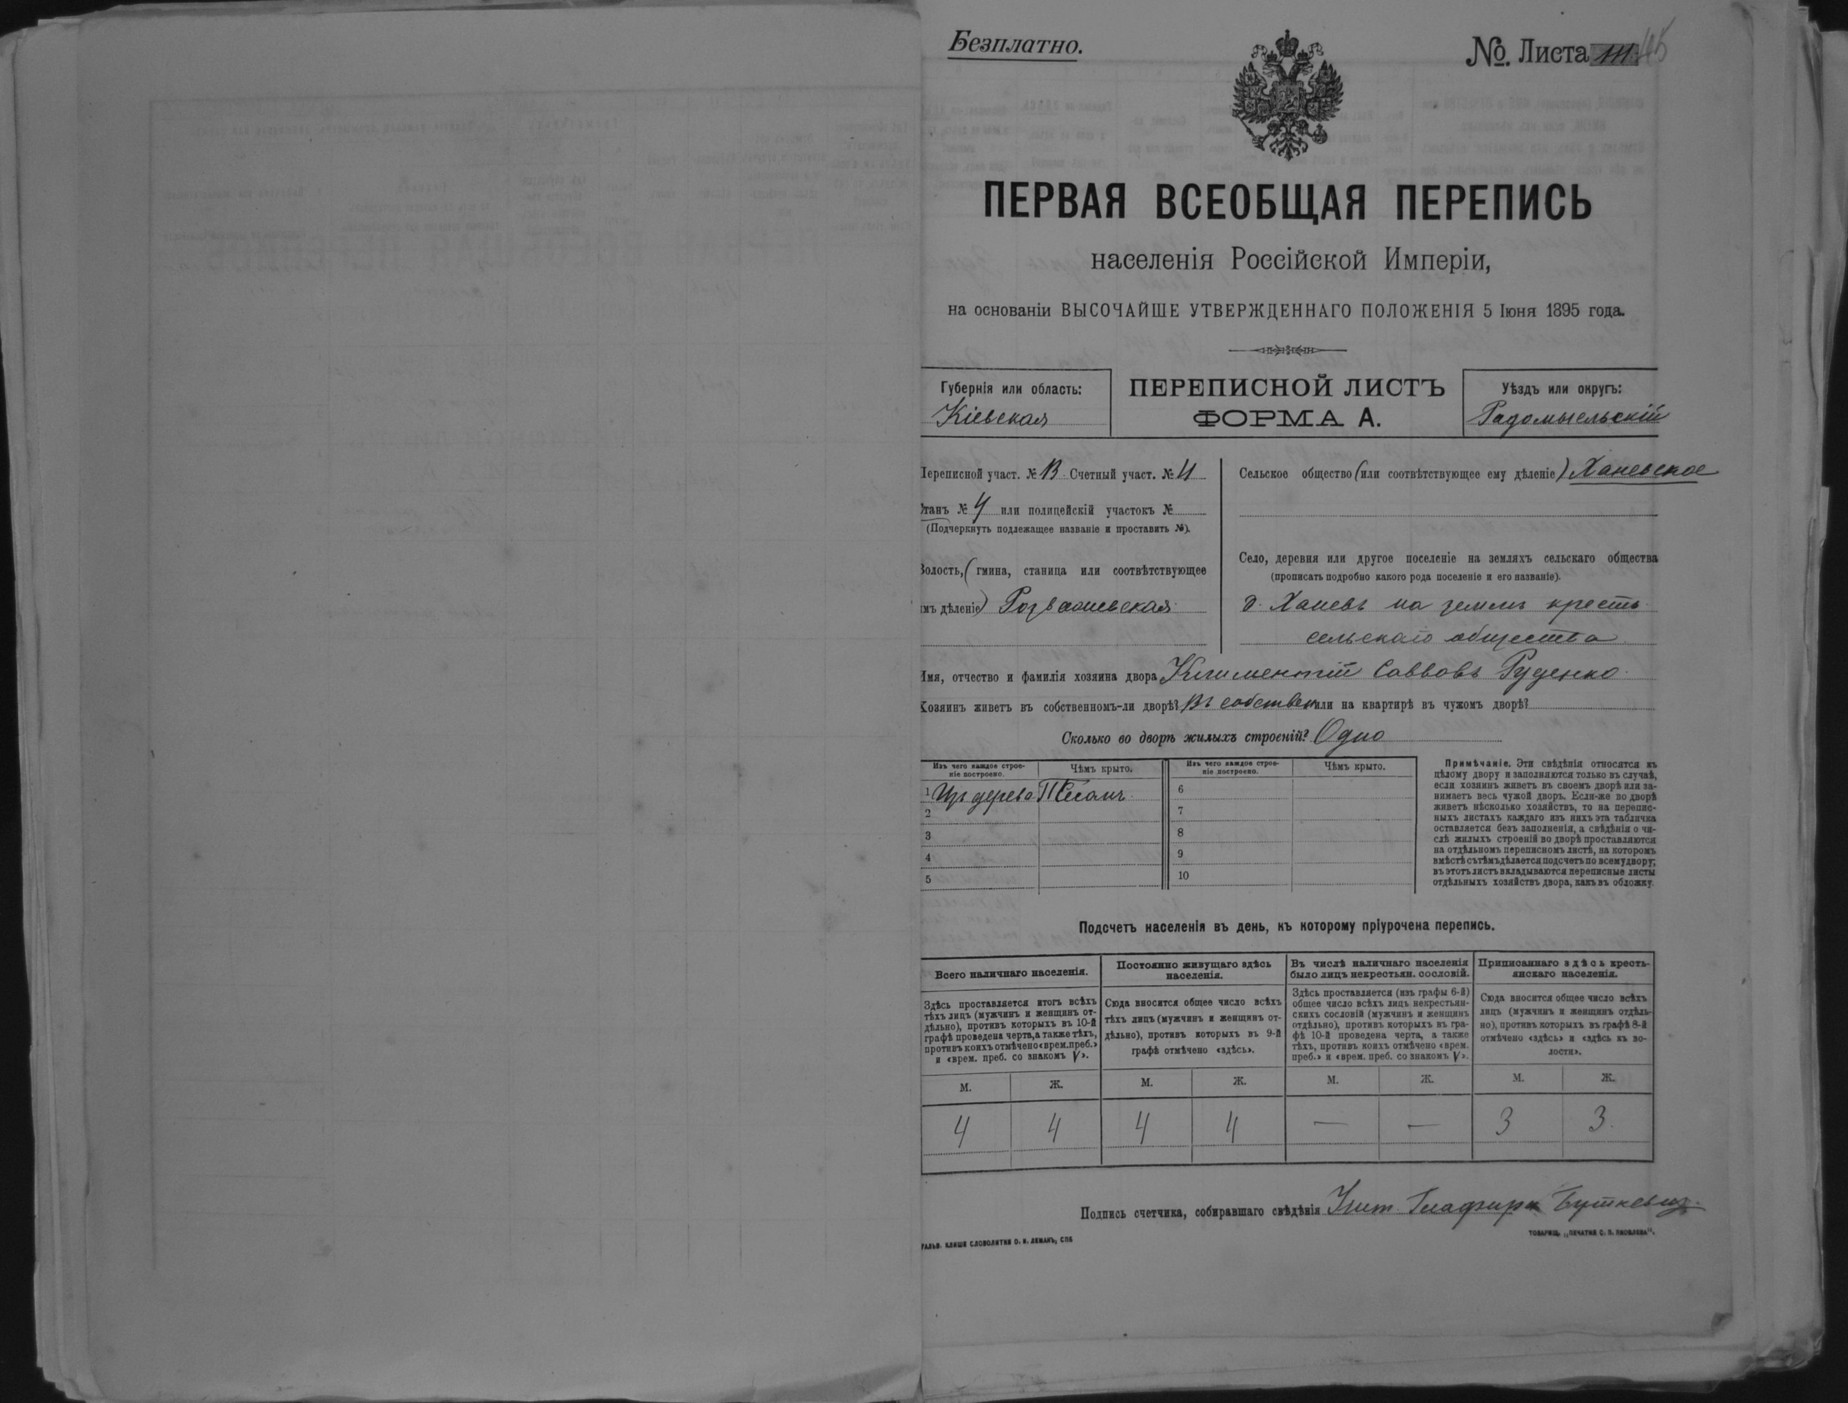 Безплатно.
№. Листа 45
ПЕРВАЯ ВСЕОБЩАЯ ПЕРЕПИСЬ
населенія Россійской Имперіи,
на основаніи ВЫСОЧАЙШЕ УТВЕРЖДЕННАГО ПОЛОЖЕНІЯ 5 Іюня 1895 года.
Губернія или область:
Кіевская
ПЕРЕПИСНОЙ ЛИСТЪ
ФОРМА А.
Уѣздъ или округъ:
Радомысльскій
Переписной участ. № Счетный участ. № 4
Станъ № 4 или полицейскій участокъ №
(Подчеркнуть подлежащее названіе и проставить №).
Волость, (гмина, станица или соотвѣтствующее
имъ дѣленіе) Розважевская
Сельское общество (или соотвѣтствующее ему дѣленіе) Ханевское
Село, деревня или другое поселеніе на земляхъ сельскаго общества
(прописать подробно какого рода поселеніе и его названіе).
д. Ханевъ на земли кресть
сельскаго общества
Имя, отчество и фамилія хозяина двора Климентій Саввовъ Руденко
Хозяинъ живетъ въ собственномъ-ли дворѣ? Въ собствен или на квартирѣ въ чужомъ дворѣ?
Сколько во дворѣ жилыхъ строеній? Одно
Изъ чего каждое строе-
ніе построено.
Чѣмъ крыто.
Изъ чего каждое строе-
ніе построено.
Чѣмъ крыто.
1 Изъ дерева
6
2
7
3
8
4
9
5
10
Примѣчаніе. Эти свѣдѣнія относятся къ
цѣлому двору и заполняются только въ случаѣ,
если хозяинъ живетъ въ своемъ дворѣ или за-
нимаетъ весь чужой дворъ. Если-же во дворѣ
живетъ нѣсколько хозяйствъ, то на перепис-
ныхъ листахъ каждаго изъ нихъ эта табличка
оставляется безъ заполненія, а свѣдѣнія о чи-
слѣ жилыхъ строеній во дворѣ проставляются
на отдѣльномъ переписномъ листѣ, на которомъ
вмѣстѣ съ тѣмъ дѣлается подсчетъ по всему двору;
въ этотъ листъ вкладываются переписные листы
отдѣльныхъ хозяйствъ двора, какъ въ обложку.
Подсчетъ населенія въ день, къ которому пріурочена перепись.
Всего наличнаго населенія.
Постоянно живущаго здѣсь
населенія.
Въ числѣ наличнаго населенія
было лицъ некрестьян. сословій.
Приписаннаго здѣсь кресть-
янскаго населенія.
Здѣсь проставляется итогъ всѣхъ
тѣхъ лицъ (мужчинъ и женщинъ от-
дѣльно), противъ которыхъ въ 10-й
графѣ проведена черта, а также тѣхъ,
противъ коихъ отмѣчено «врем. преб.»
и «врем. преб. со знакомъ V».
Сюда вносится общее число всѣхъ
тѣхъ лицъ (мужчинъ и женщинъ от-
дѣльно), противъ которыхъ въ 9-й
графѣ отмѣчено «здѣсь».
Здѣсь проставляется (изъ графы 6-й)
общее число всѣхъ лицъ некрестьян-
скихъ сословій (мужчинъ и женщинъ
отдѣльно), противъ которыхъ въ гра-
фѣ 10-й проведена черта, а также
тѣхъ, противъ коихъ отмѣчено «врем.
преб.» и «врем. преб. со знакомъ V».
Сюда вносится общее число всѣхъ
лицъ (мужчинъ и женщинъ отдѣль-
но), противъ которыхъ въ графѣ 8-й
отмѣчено «здѣсь» и «здѣсь къ во-
лости».
М. Ж. М. Ж. М. Ж. М. Ж.
4 4 4 4 — — 3 3
Подпись счетчика, собиравшаго свѣдѣнія Буткевичъ
ГАЛЬВ. КЛИШЕ СЛОВОЛИТНИ О. И. ЛЕМАНЪ, СПБ
ТОВАРИЩ. „ПЕЧАТНЯ С. П. ЯКОВЛЕВА".